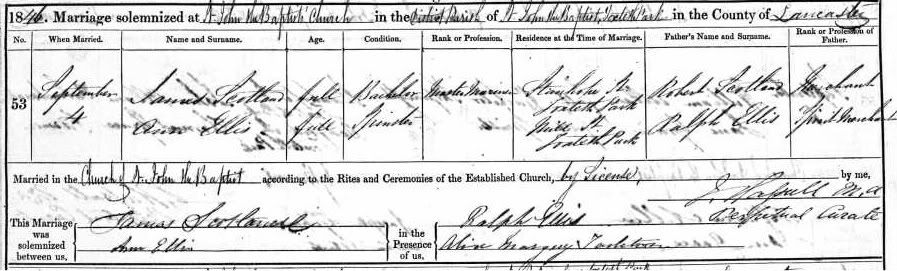 1846. Marriage solemnized at St John the Baptist's Church in the District Parish of St John the Baptist, Toxteth Park in the County of Lancaster
No. When Married. Name and Surname. Age. Condition. Rank or Profession. Residence at the Time of Marriage. Father's Name and Surname. Rank or Profession of Father.
53 September 4 James Scotland full Bachelor Master Mariner Toxteth Park Robert Scotland Merchant
Ann Ellis full Spinster Mill St. Toxteth Park Ralph Ellis Merchant
Married in the Church of St. John the Baptist according to the Rites and Ceremonies of the Established Church, by License, by me,
J. M.A
Perpetual Curate
This Marriage was solemnized between us,
James Scotland
Ann Ellis
in the Presence of us,
Ralph Ellis